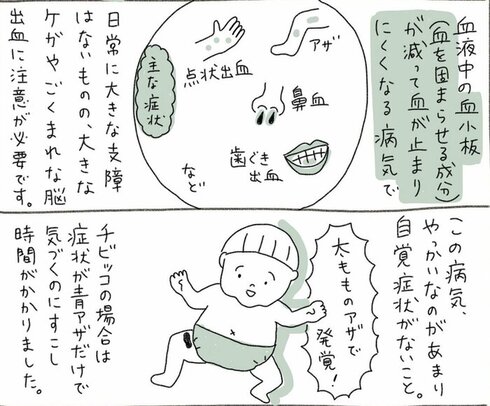 血液中の血小板
(血を固まらせる成分)
が減って血が止まり
にくくなる病気で
アザ
点状出血
主な症状
鼻血
歯ぐき
出血
など
日常に大きな支障
はないものの、大きな
ケガやごくまれな脳
出血に注意が必要です。
この病気、
やっかいなのがあまり
自覚症状がないこと。
太もものアザで
発覚!
チビッコの場合は
症状が青アザだけで
気づくのにすこし
時間がかかりました。